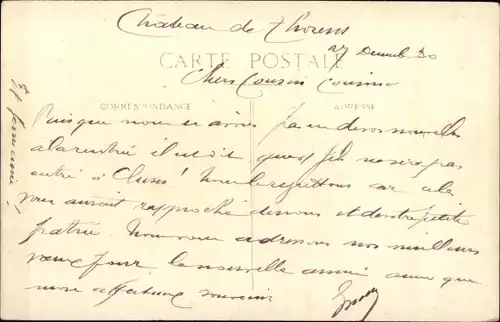 Château de Thorens
27 Décemb 30
CARTE POSTALE
Chers Cousin Cousine
CORRESPONDANCE
ADRESSE
Puisque nous n'avons pas de vos nouvelles
à la rentrée il doit que fils ne sera pas
entré à Cluses! Nous le regrettons car cela
vous aurait rapproché de nous et de votre petite
patrie. Nous vous adressons nos meilleurs
vœux pour la nouvelle année ainsi que
mon affectueux souvenir